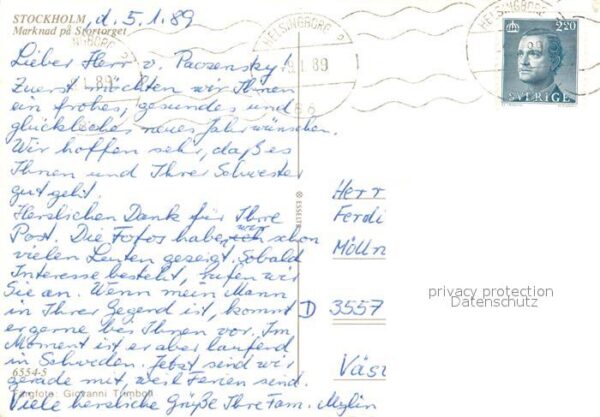 STOCKHOLM
Marknad på Stortorget
, d. 5.1.89
Lieber Herr v. Paczensky!
Zuerst möchten wir Ihnen
ein frohes, gesundes und
glückliches neues Jahr wünschen.
Wir hoffen sehr, daß es
Ihnen und Ihrer Schwester
gut geht.
Herzlichen Dank für Ihre
Post. Die Fotos haben wir schon
vielen Leuten gezeigt. Sobald
Interesse besteht, rufen wir
Sie an. Wenn mein Mann
in Ihrer Gegend ist, kommt
er gerne bei Ihnen vor. Im
Moment ist er aber laufend
in Schweden. Jetzt sind wir
gerade mit, weil Ferien sind.
Viele herzliche Grüße Ihre Fam. Mylin
6554-5
Färgfoto: Giovanni Trimboli
ESSELTE
HELSINGBORG 2
5.1.89
HELSINGBORG 2
2.20
SVERIGE
Herr
Ferdi
Mölln
D 3557
Väst
privacy protection
Datenschutz